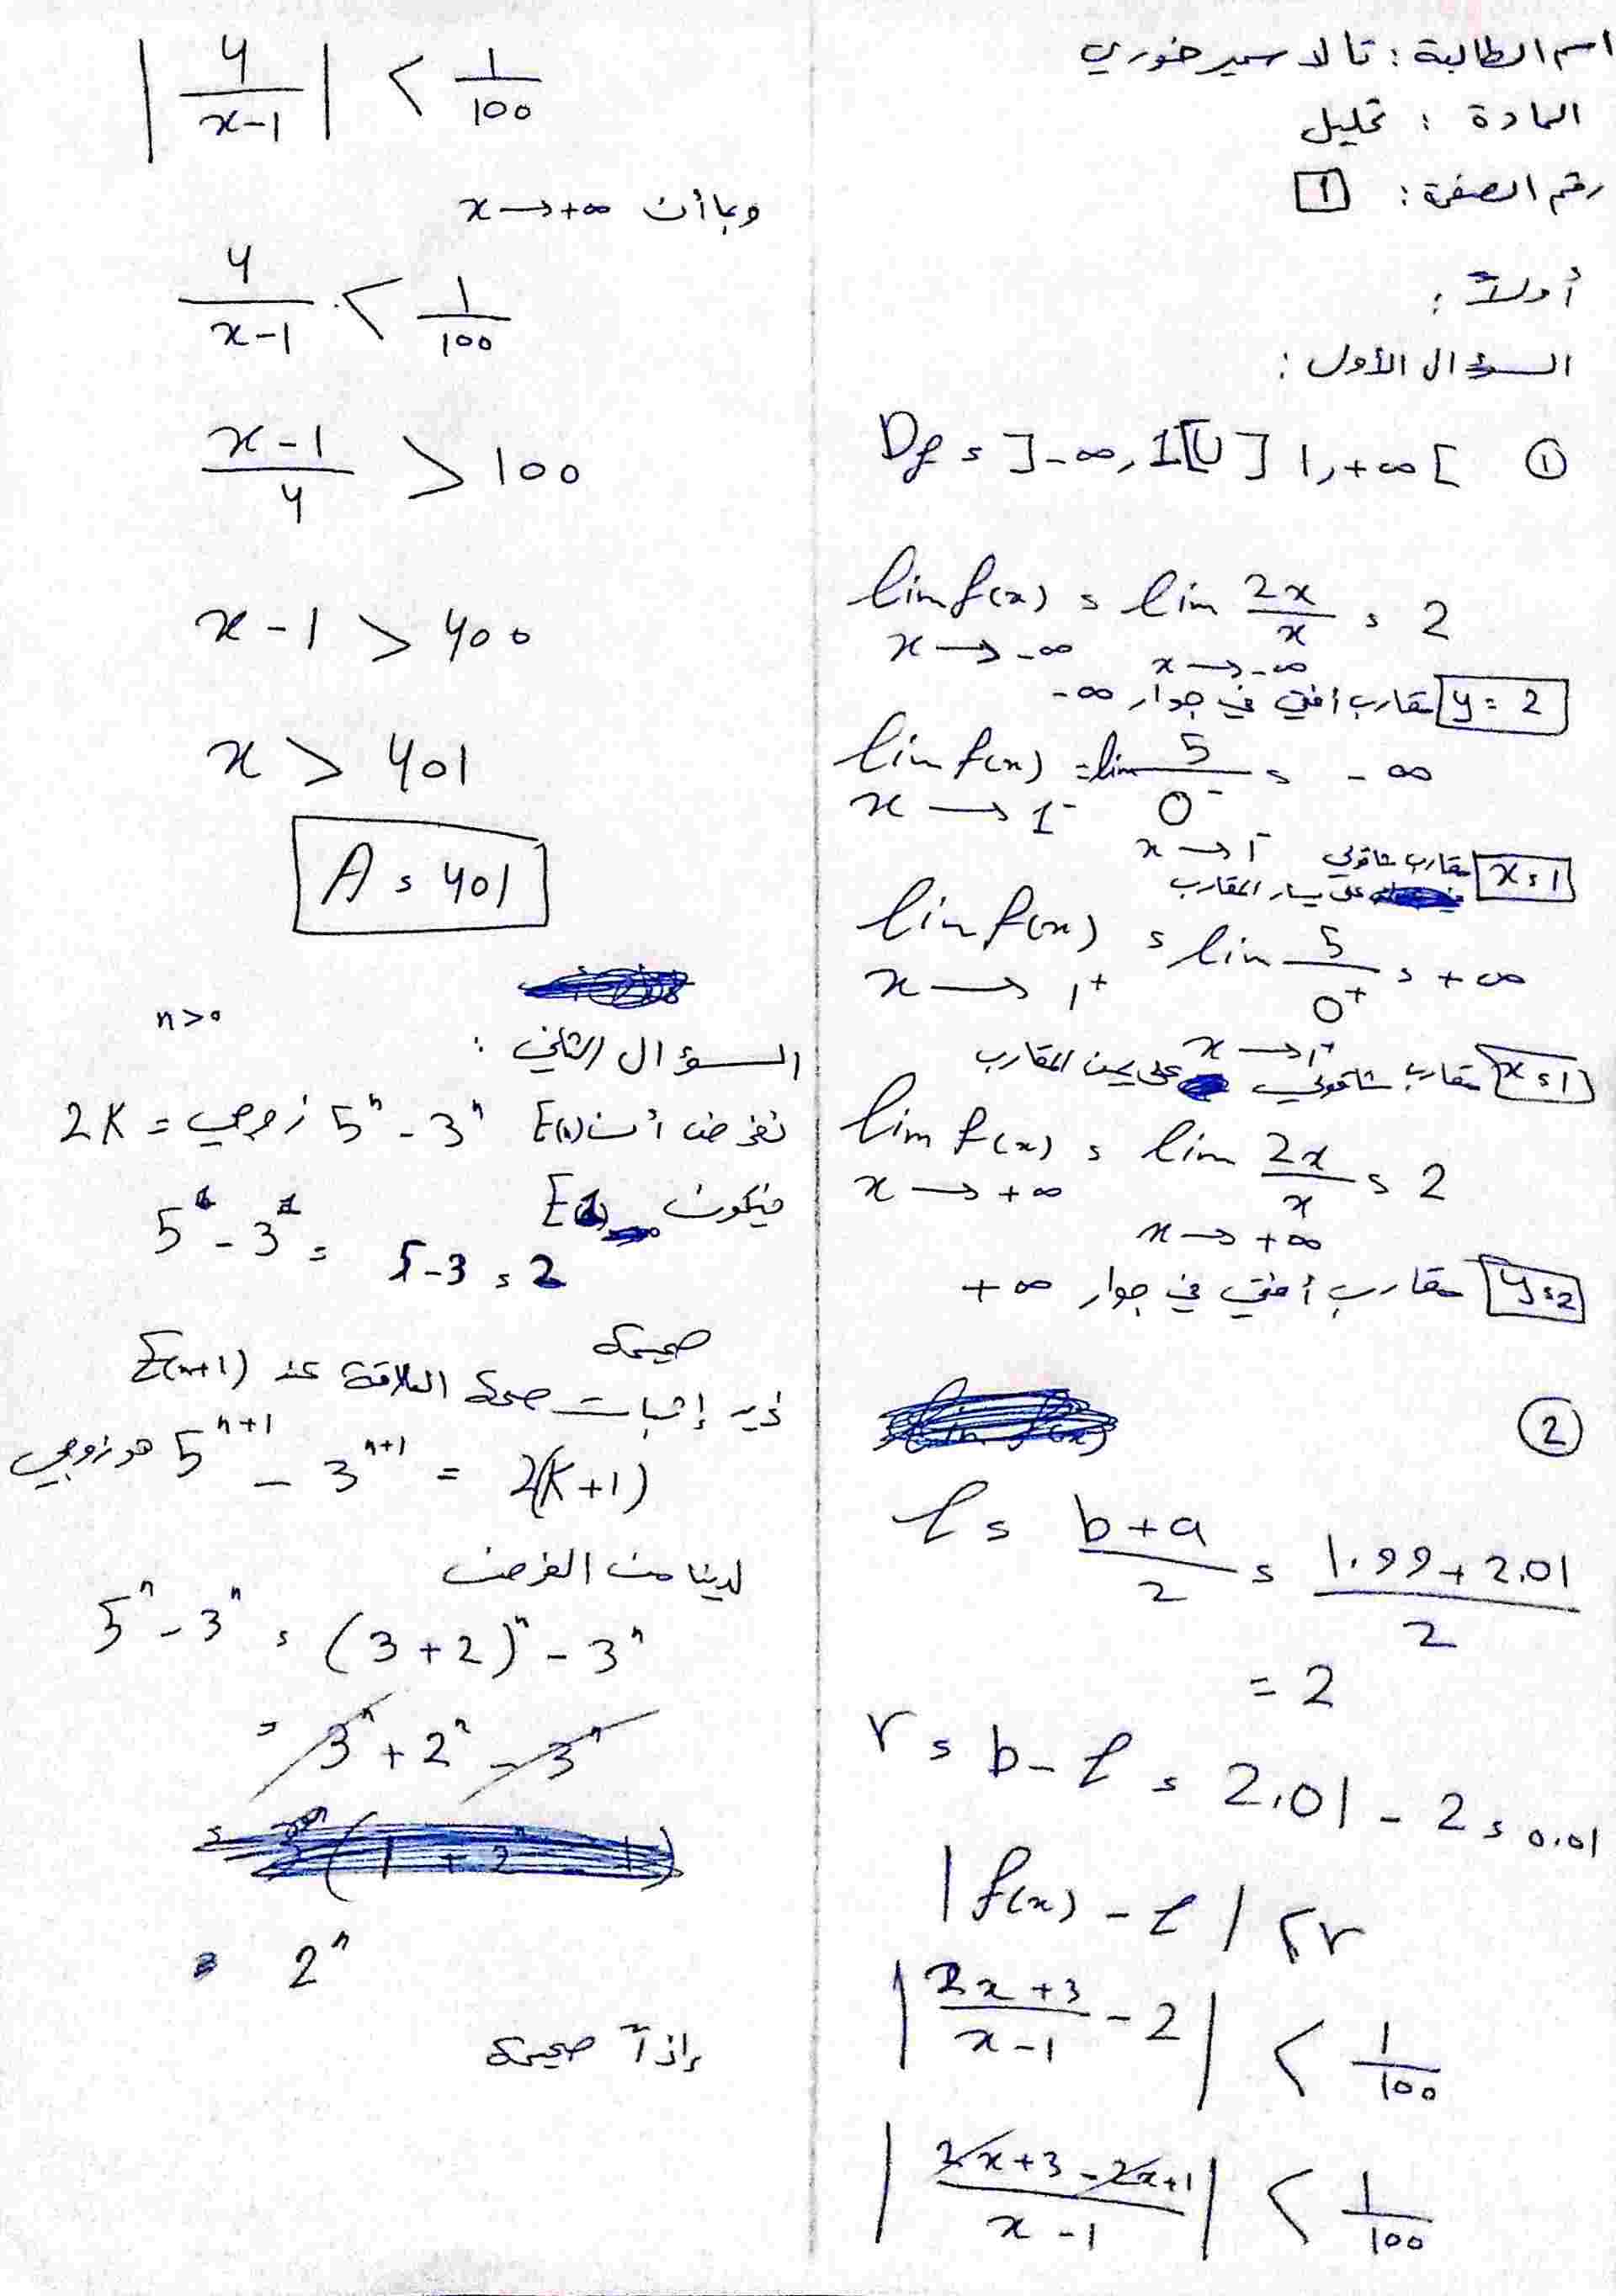 اسم الطالبة : تالا سمير خوري
المادة : تحليل
رقم الصفحة : 1
أولاً :
السؤال الأول :
① Df = ]-∞, 1[∪] 1, +∞ [
lim f(x) = lim 2x/x = 2
x → -∞ x → -∞
y = 2 مقارب أفقي في جوار -∞
lim f(x) = lim 5/0⁻ = -∞
x → 1⁻ x → 1⁻
x = 1 مقارب شاقولي
على يسار المقارب
lim f(x) = lim 5/0⁺ = +∞
x → 1⁺ x → 1⁺
x = 1 مقارب شاقولي على يمين المقارب
lim f(x) = lim 2x/x = 2
x → +∞ x → +∞
y = 2 مقارب أفقي في جوار +∞
②
ℓ = (b+a)/2 = (1.99+2.01)/2
= 2
r = b - ℓ = 2.01 - 2 = 0.01
|f(x) - ℓ| < r
|(2x+3)/(x-1) - 2| < 1/100
|(2x+3-2x+1)/(x-1)| < 1/100
|4/(x-1)| < 1/100
وبما أن x → +∞
4/(x-1) < 1/100
(x-1)/4 > 100
x - 1 > 400
x > 401
A = 401
n > 0
السؤال الثاني :
نفرض أن E(n) 5ⁿ - 3ⁿ زوجي = 2K
فيكون E(1)
5¹ - 3¹ = 5-3 = 2
صحيحة
نريد إثبات صحة العلاقة عند E(n+1)
5ⁿ⁺¹ - 3ⁿ⁺¹ = 2(K+1) هو زوجي
لدينا من الفرض
5ⁿ - 3ⁿ = (3+2)ⁿ - 3ⁿ
= 3ⁿ + 2ⁿ - 3ⁿ
= 2ⁿ
إذاً صحيحة